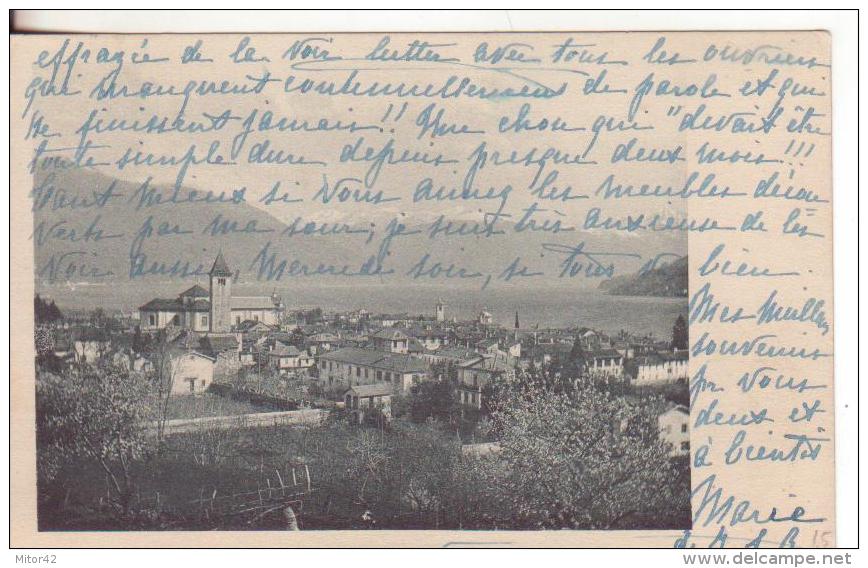 effrayée de la voir lutter avec tous les ouvriers
qui manquent continuellement de parole et qui
ne finissent jamais!! Une chose qui "devait être
toute simple dure depuis presque deux mois!!!
tant mieux si vous aimez les meubles
verts par ma sœur, je suis très anxieuse de les
voir aussi, Mercredi soir, si tout va bien.
Mes meilleurs
souvenirs
pr vous
deux et
à bientôt
Marie
15
Mitor42
www.delcampe.net